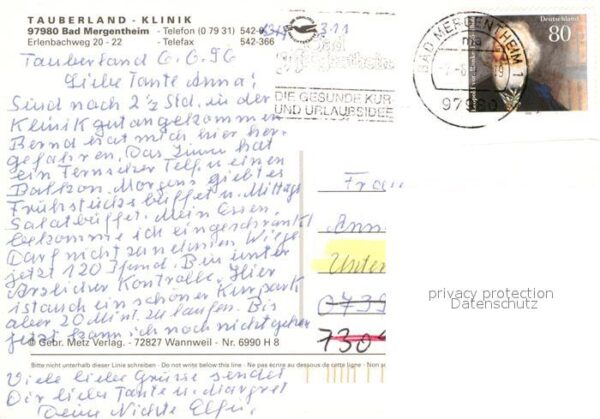 TAUBERLAND - KLINIK
97980 Bad Mergentheim - Telefon (0 79 31) 542-0
Erlenbachweg 20 - 22 - Telefax 542-366
Tauberland 6.6.96
Liebe Tante Anna!
Sind nach 2 ½ Std. in der
Klinik gut angekommen
Bernd hat mich hier her-
gefahren. Das Zimm hat
ein Fernseher Telf. u einen
Balkon. Morgens giebt es
Frühstücksbüffet u. Mittags
Salatbüffet. Mein Essen
bekomme ich eingeschränkt
Darf nicht zunehmen. Wiege
jetzt 120 Pfund. Bin unter
Ärzlicher Kontrolle. Hier
ist auch ein schöner Kurpark
aber 20 Mint. zu laufen. Bis
jetzt kann ich noch nicht gehen
© Gebr. Metz Verlag. - 72827 Wannweil - Nr. 6990 H 8
Bitte nicht unterhalb dieser Linie schreiben - Do not write below this line - Ne pas écrire au dessous de cette ligne - Non
Viele liebe Grüsse sendet
Dir liebe Tante u. Margret
Deine Nichte Elfri.
DIE GESUNDE KUR-
UND URLAUBSIDEE
BAD MERGENTHEIM 1
Deutschland
80
Fra
Ann
Unter
privacy protection
Datenschutz